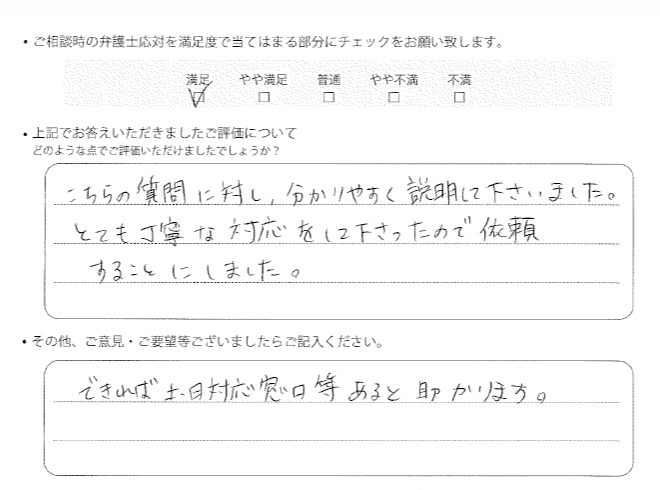 ・ご相談時の弁護士応対を満足度で当てはまる部分にチェックをお願い致します。
満足 やや満足 普通 やや不満 不満
☑ □ □ □ □
・上記でお答えいただきましたご評価について
どのような点でご評価いただけましたでしょうか？
こちらの質問に対し、分かりやすく説明して下さいました。
とても丁寧な対応をして下さったので依頼
することにしました。
・その他、ご意見・ご要望等ございましたらご記入ください。
できれば土、日対応窓口等あると助かります。